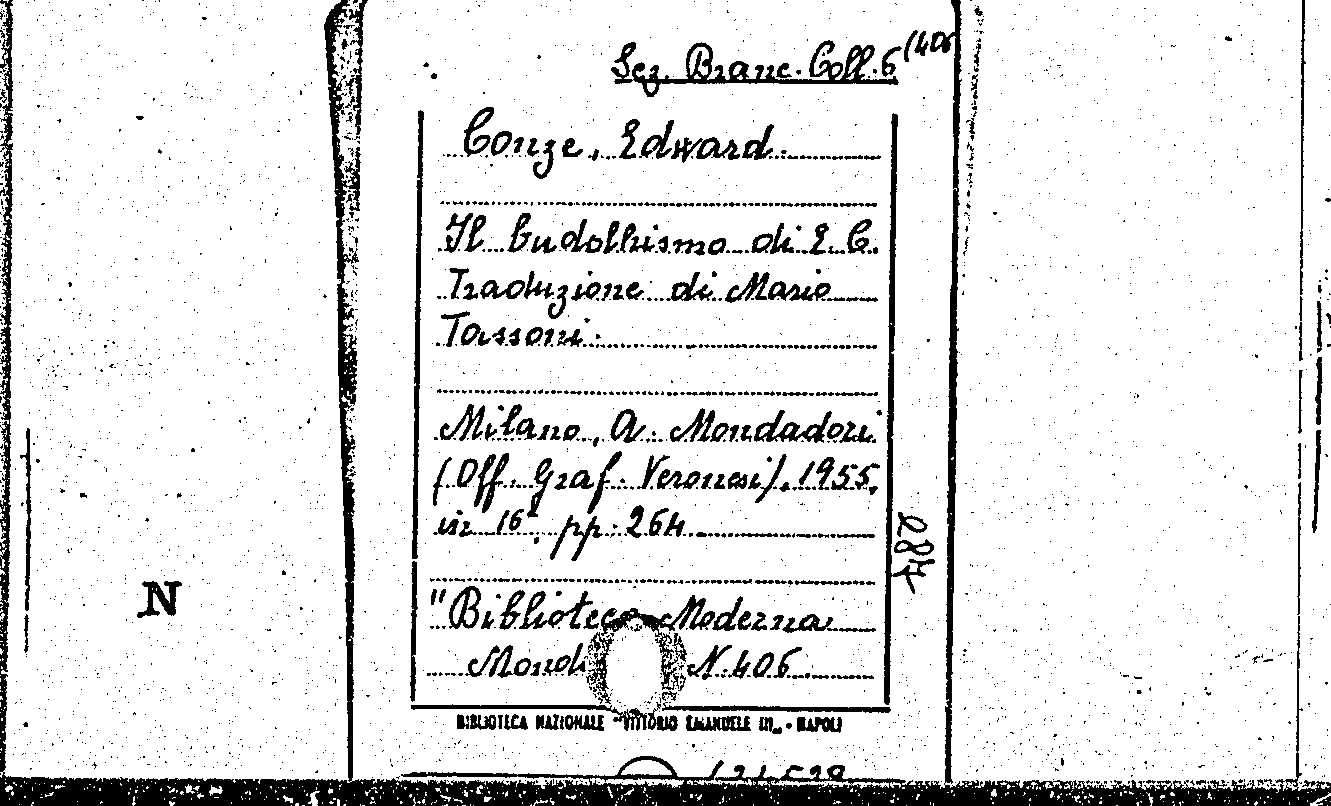 Sez. Branc. Coll. 6 (406
Conze, Edward.
Il buddhismo di E. C.
Traduzione di Mario
Tassoni.
Milano, A. Mondadori
(Off. Graf. Veronesi), 1955,
in 16°, pp. 264.
284
"Biblioteca Moderna
N. 406.
N
BIBLIOTECA NAZIONALE "VITTORIO EMANUELE III„ - NAPOLI